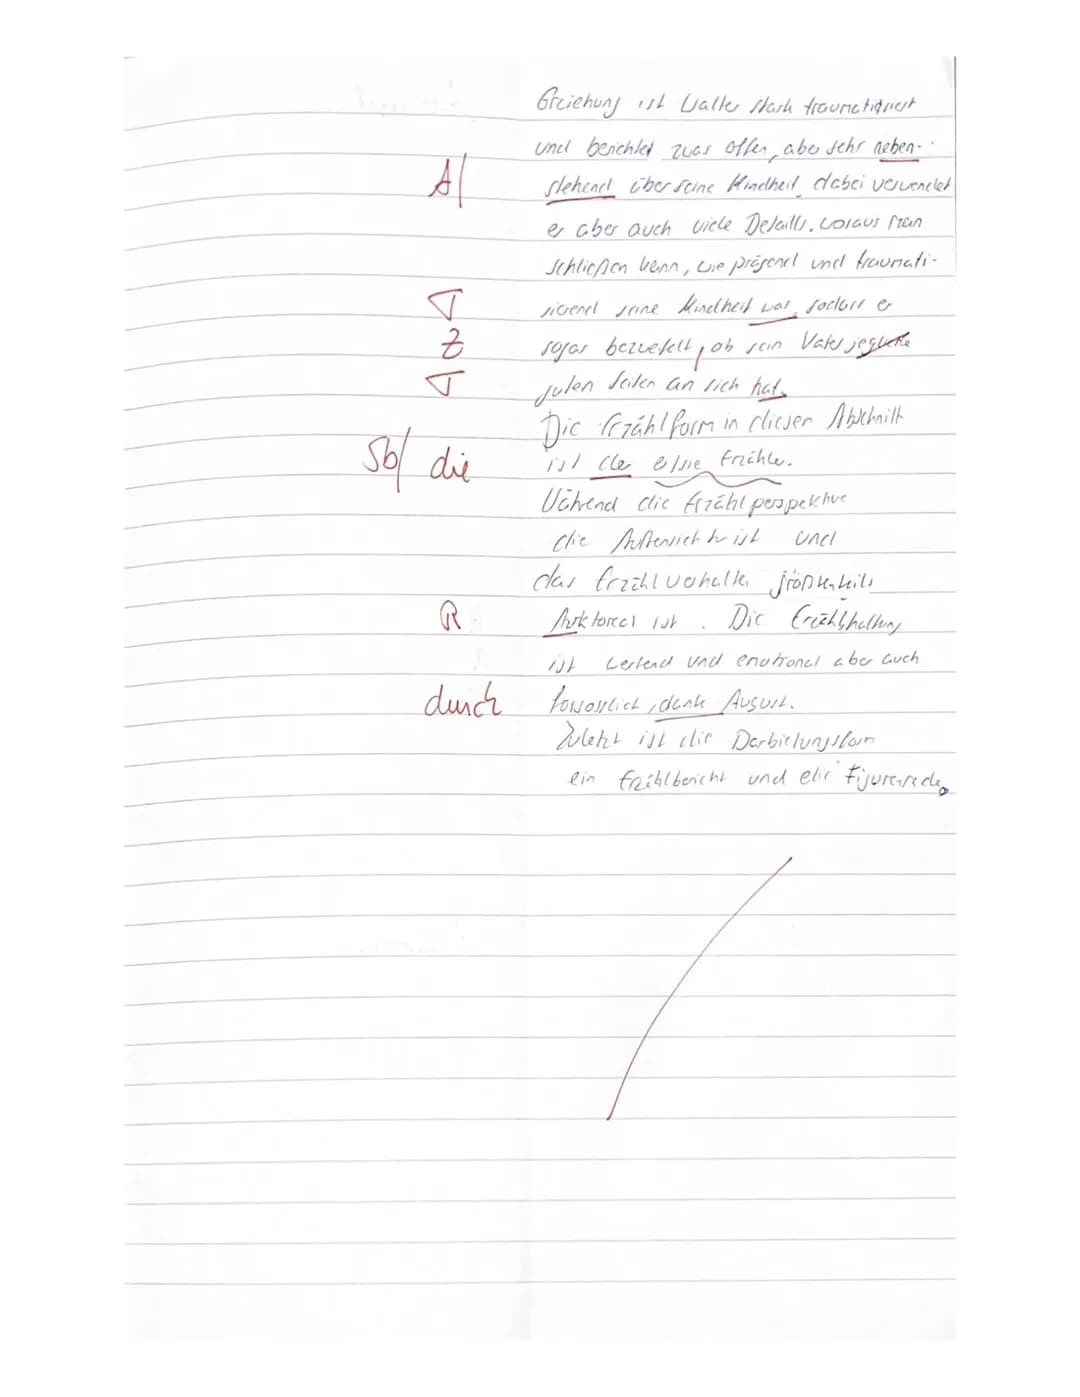 Erziehung ist Walter stark traumatisiert
und berichtet zwar offen, aber sehr neben-
A/ stehend über seine Kindheit, dabei verwendet
er aber auch viele Details, woraus man
schließen kann, wie prägend und traumati-
T sierend seine Kindheit war, sodass er
Z sogar bezweifelt, ob sein Vater jegliche
T guten Seiten an sich hat.
Die Erzählform in diesen Abschnitt
Sb/ die ist der Erzähler.
Während die Erzählperspektive
die Außensicht ist und
das Erzählverhalten größtenteils
R Auktoreal ist. Die Erzählhaltung
ist wertend und emotional aber auch
durch August.
Zuletzt ist die Darbietungsform
ein Erzählbericht und die Figurenrede.